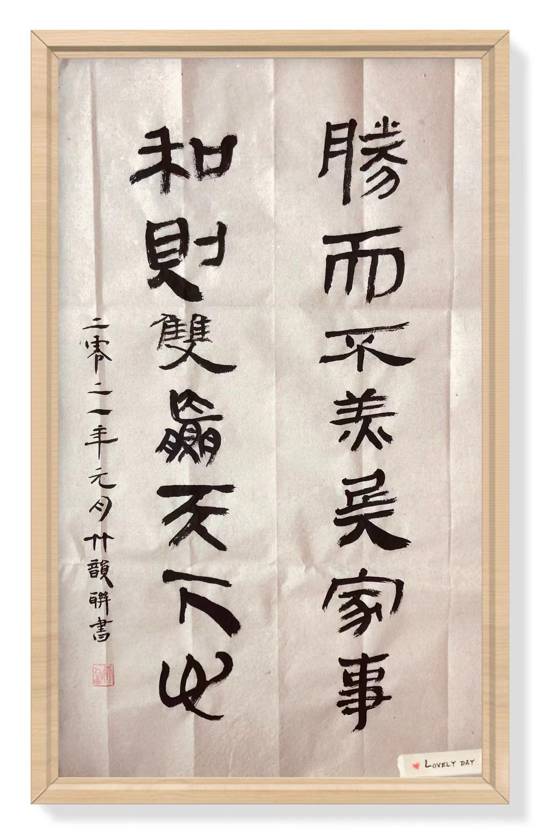 勝而不羨吳家事
和則雙贏天下也
二零二一年元月竹韻聯書
LOVELY DAY